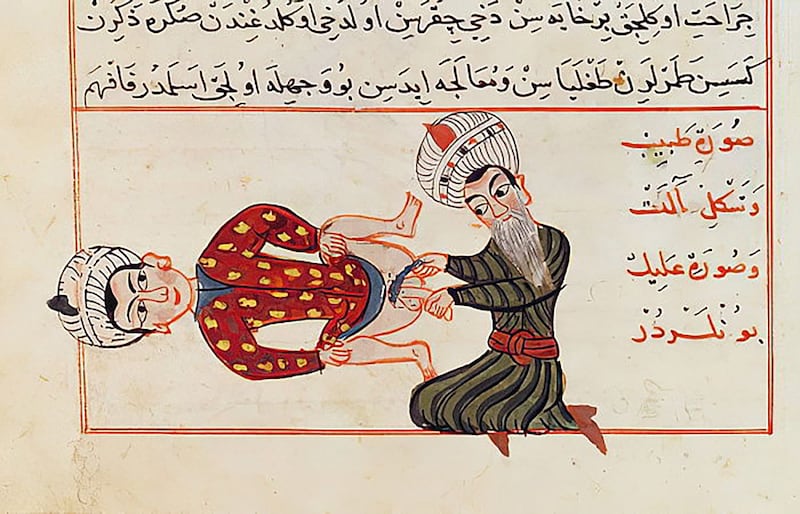 جراحت اولیجق بر خایه سن دخی چقرسن اول دخی اوکلدوغندن صکره ذکرن
کسسن طمرلرین طغلیاسن ومعالجه ایدسن بو وجهله اولیجق اسلمدر فافهم
صورة طبیب
وشکل آلت
وصورة علیل
بونلردر